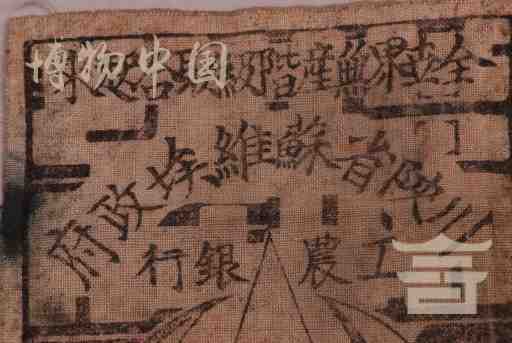 博物中国
全世界無產階級聯合起來
川陝省蘇維埃政府
工農銀行